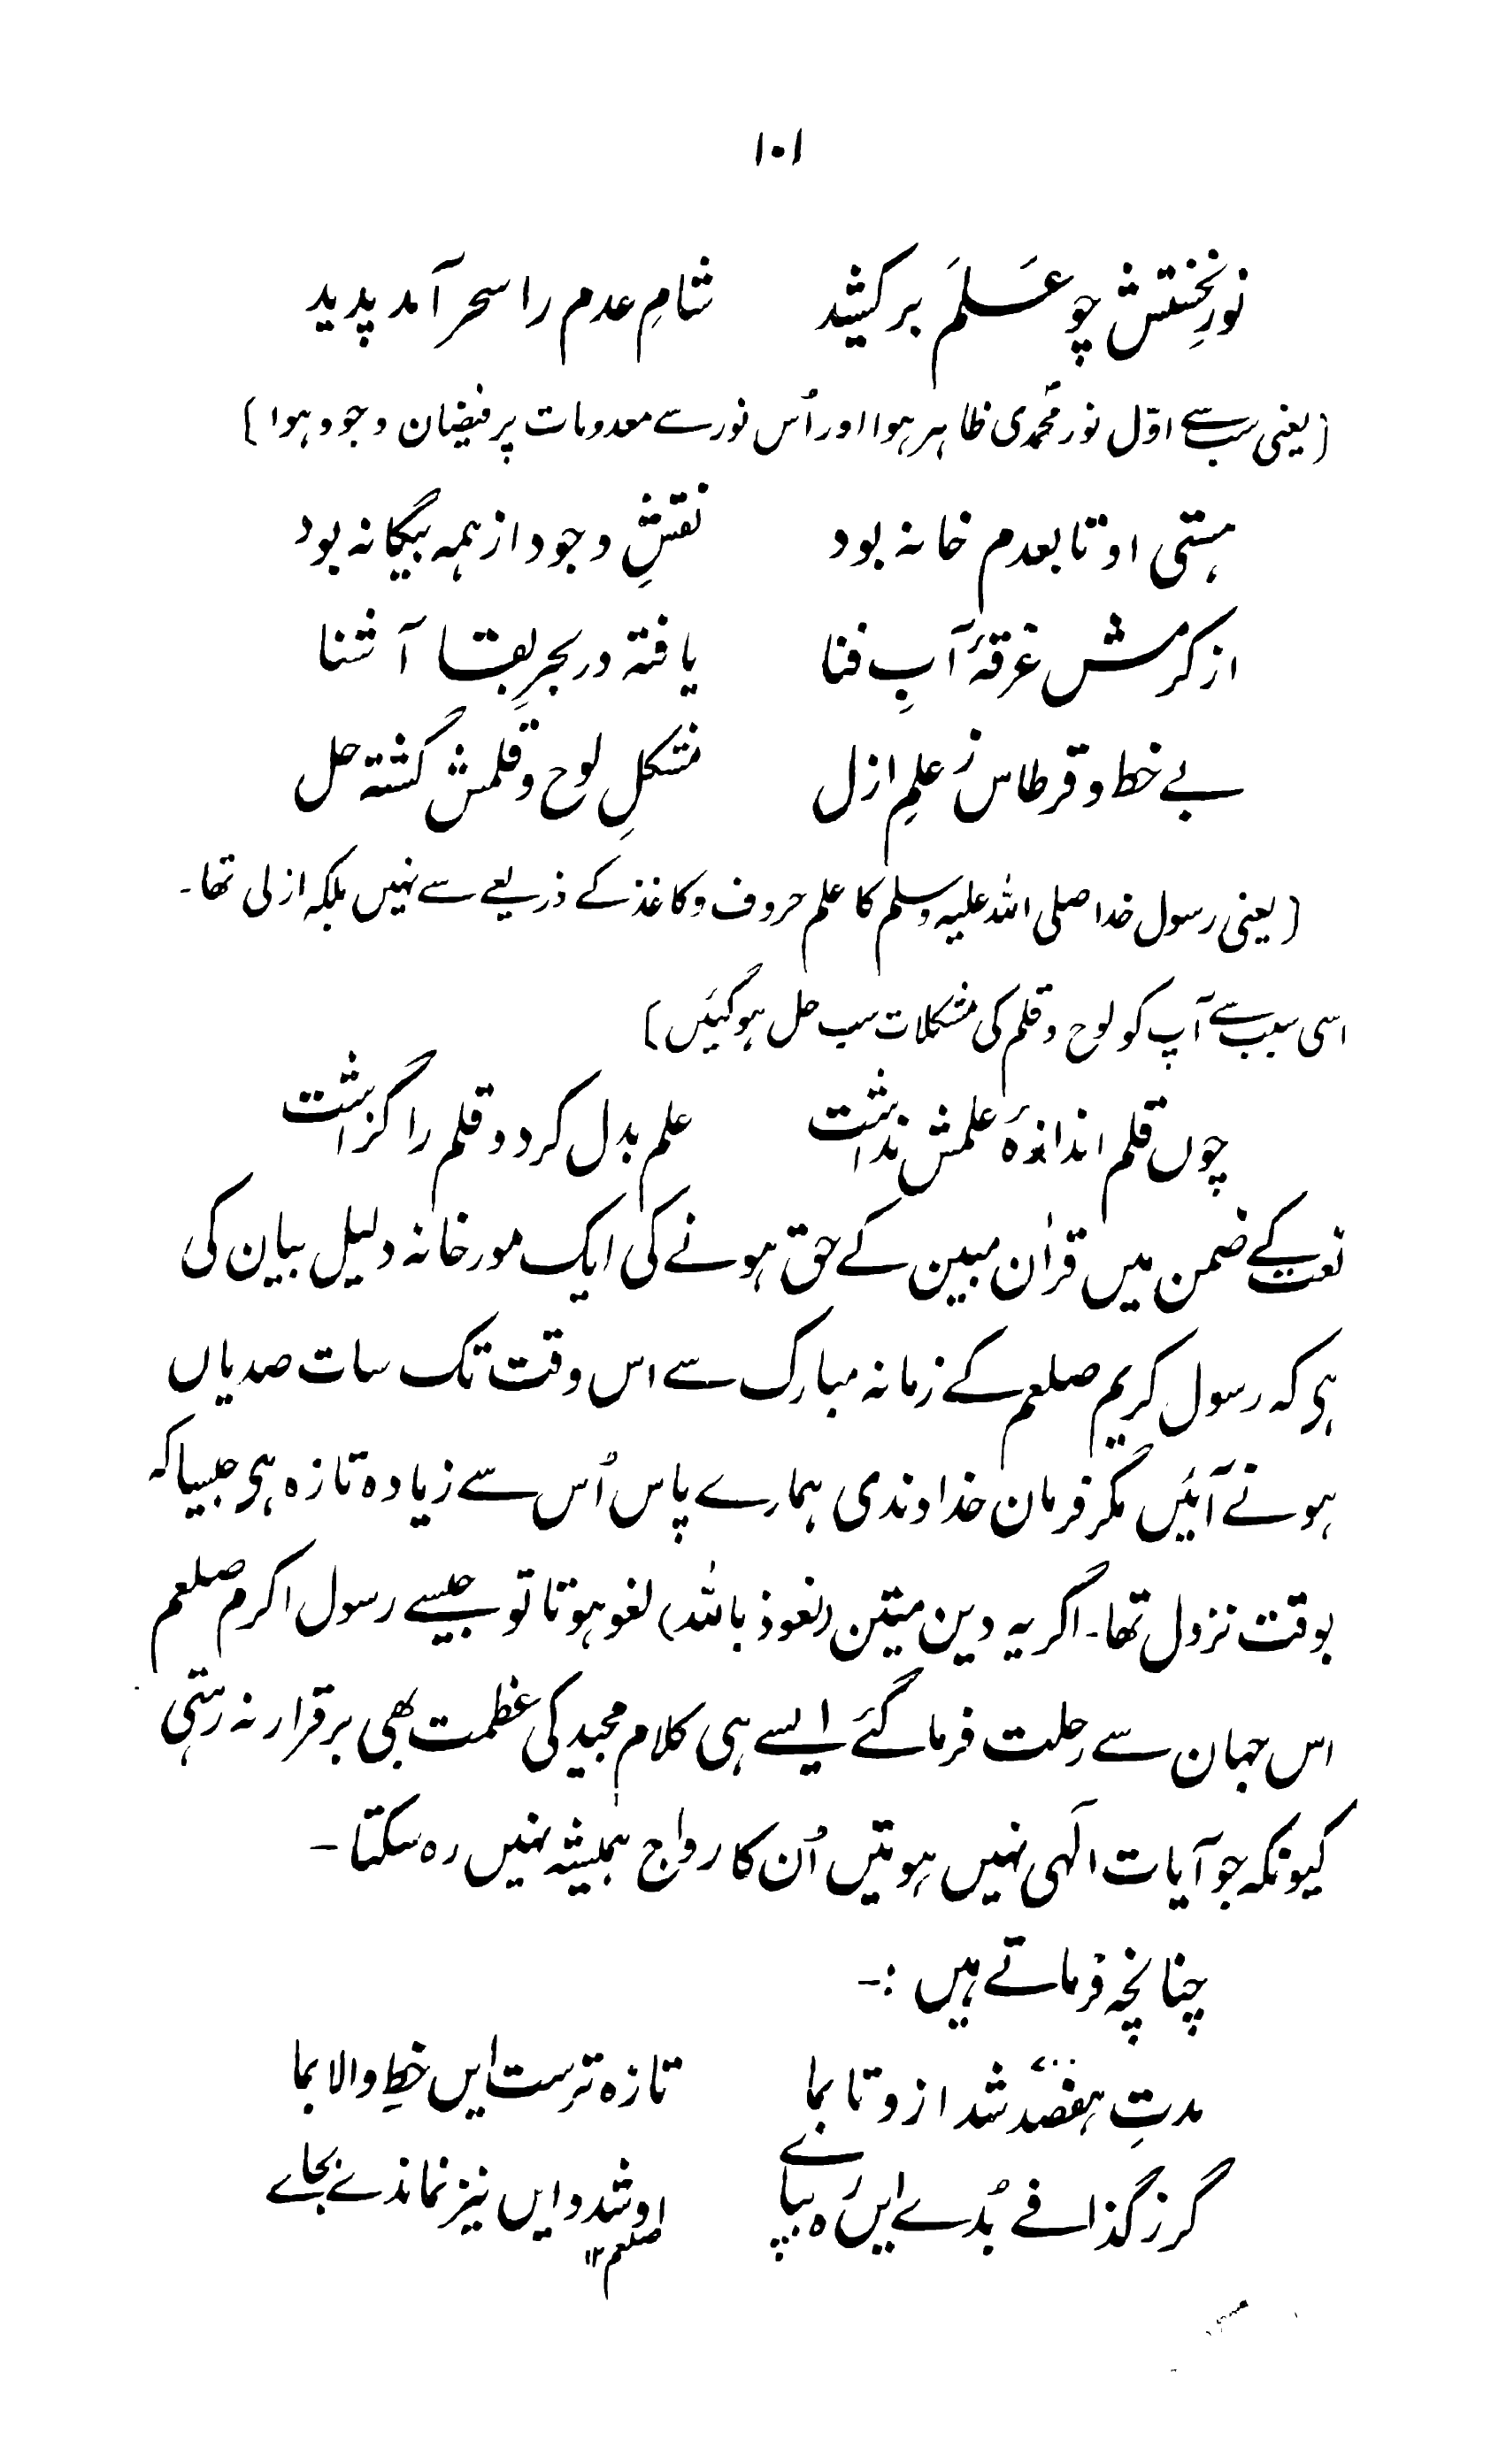 ۱۰۱
نورِ نخستش چو عَلَم بر کشید شامِ عدم را سحر آمد پدید
(یعنی سب سے اوّل نور محمدی ظاہر ہوا اور اُس نور سے معدومات پر فیضان وجود ہوا)
ہستی او تا بعدم خانہ بود نقشِ وجود از ہمہ بیگانہ بود
از کرمش غرقۂ آبِ فنا یافتہ در بحرِ بقا آشنا
بے خط و قرطاس ز علمِ ازل مشکلِ لوح و قلمش گشتہ حل
(یعنی رسول خدا صلی اللہ علیہ وسلم کا علم حروف و کاغذ کے ذریعے سے نہیں بلکہ ازلی تھا۔
اسی سبب سے آپ کو لوح و قلم کی مشکلات سب حل ہو گئیں)
چوں قلم اندازۂ علمش نداشت علم بدل کرد و قلم را گزاشت
نعت کے ضمن میں قراٰن مبین کے حق ہونے کی ایک مورخانہ دلیل بیان کی
ہی کہ رسول کریم صلعم کے زمانہ مبارک سے اس وقت تک سات صدیاں
ہونے آئیں مگر فرمان خداوندی ہمارے پاس اُس سے زیادہ تازہ ہی جیسا کہ
بوقت نزول تھا۔ اگر یہ دین متین (نعوذ باللہ) لغو ہوتا تو جیسے رسول اکرم صلعم
اس جہان سے رحلت فرما گئے ایسے ہی کلام مجید کی عظمت بھی برقرار نہ رہتی
کیونکہ جو آیات الٰہی نہیں ہوتیں اُن کا رواج ہمیشہ نہیں رہ سکتا ۔
چنانچہ فرماتے ہیں :۔
مدتِ ہفصد شد از و تا بما تازہ ترست ایں خطِ والا بما
گر ز گذافے بُدے ایں رَہ بپاے او شد و ایں نیز نماندے بجاے
صلعم ۱۲